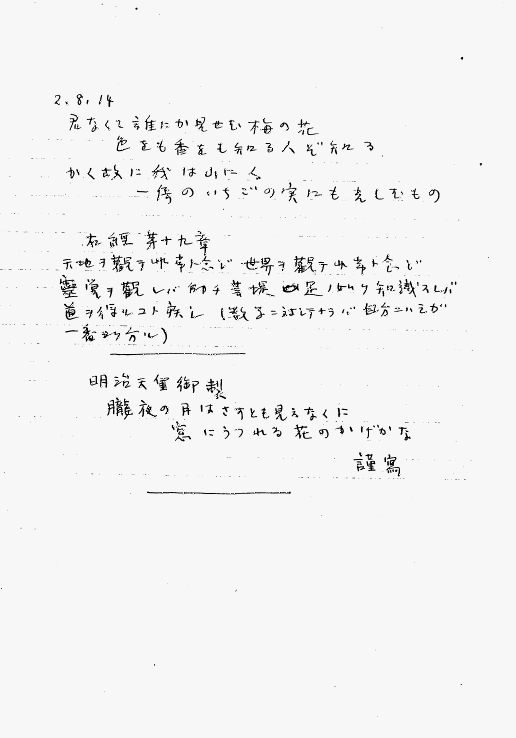 2.8.14
君なくて誰にか見せむ梅の花
色をも香をも知る人ぞ知る
かく故に我は山に
一倍のいちごの実にも
右經第十九章
天地ヲ觀テ非常ト念ど 世界ヲ觀テ非常ト念ど
靈覚ヲ觀レバ即チ菩提 如是ノ如ク知識スレバ
道ヲ得ルコト疾し(数学ニ ナラバ自分ニハ が
一番 分ル)
明治天皇御製
朧夜の月はさすとも見えなくに
窓にうつれる花のかげかな
謹寫